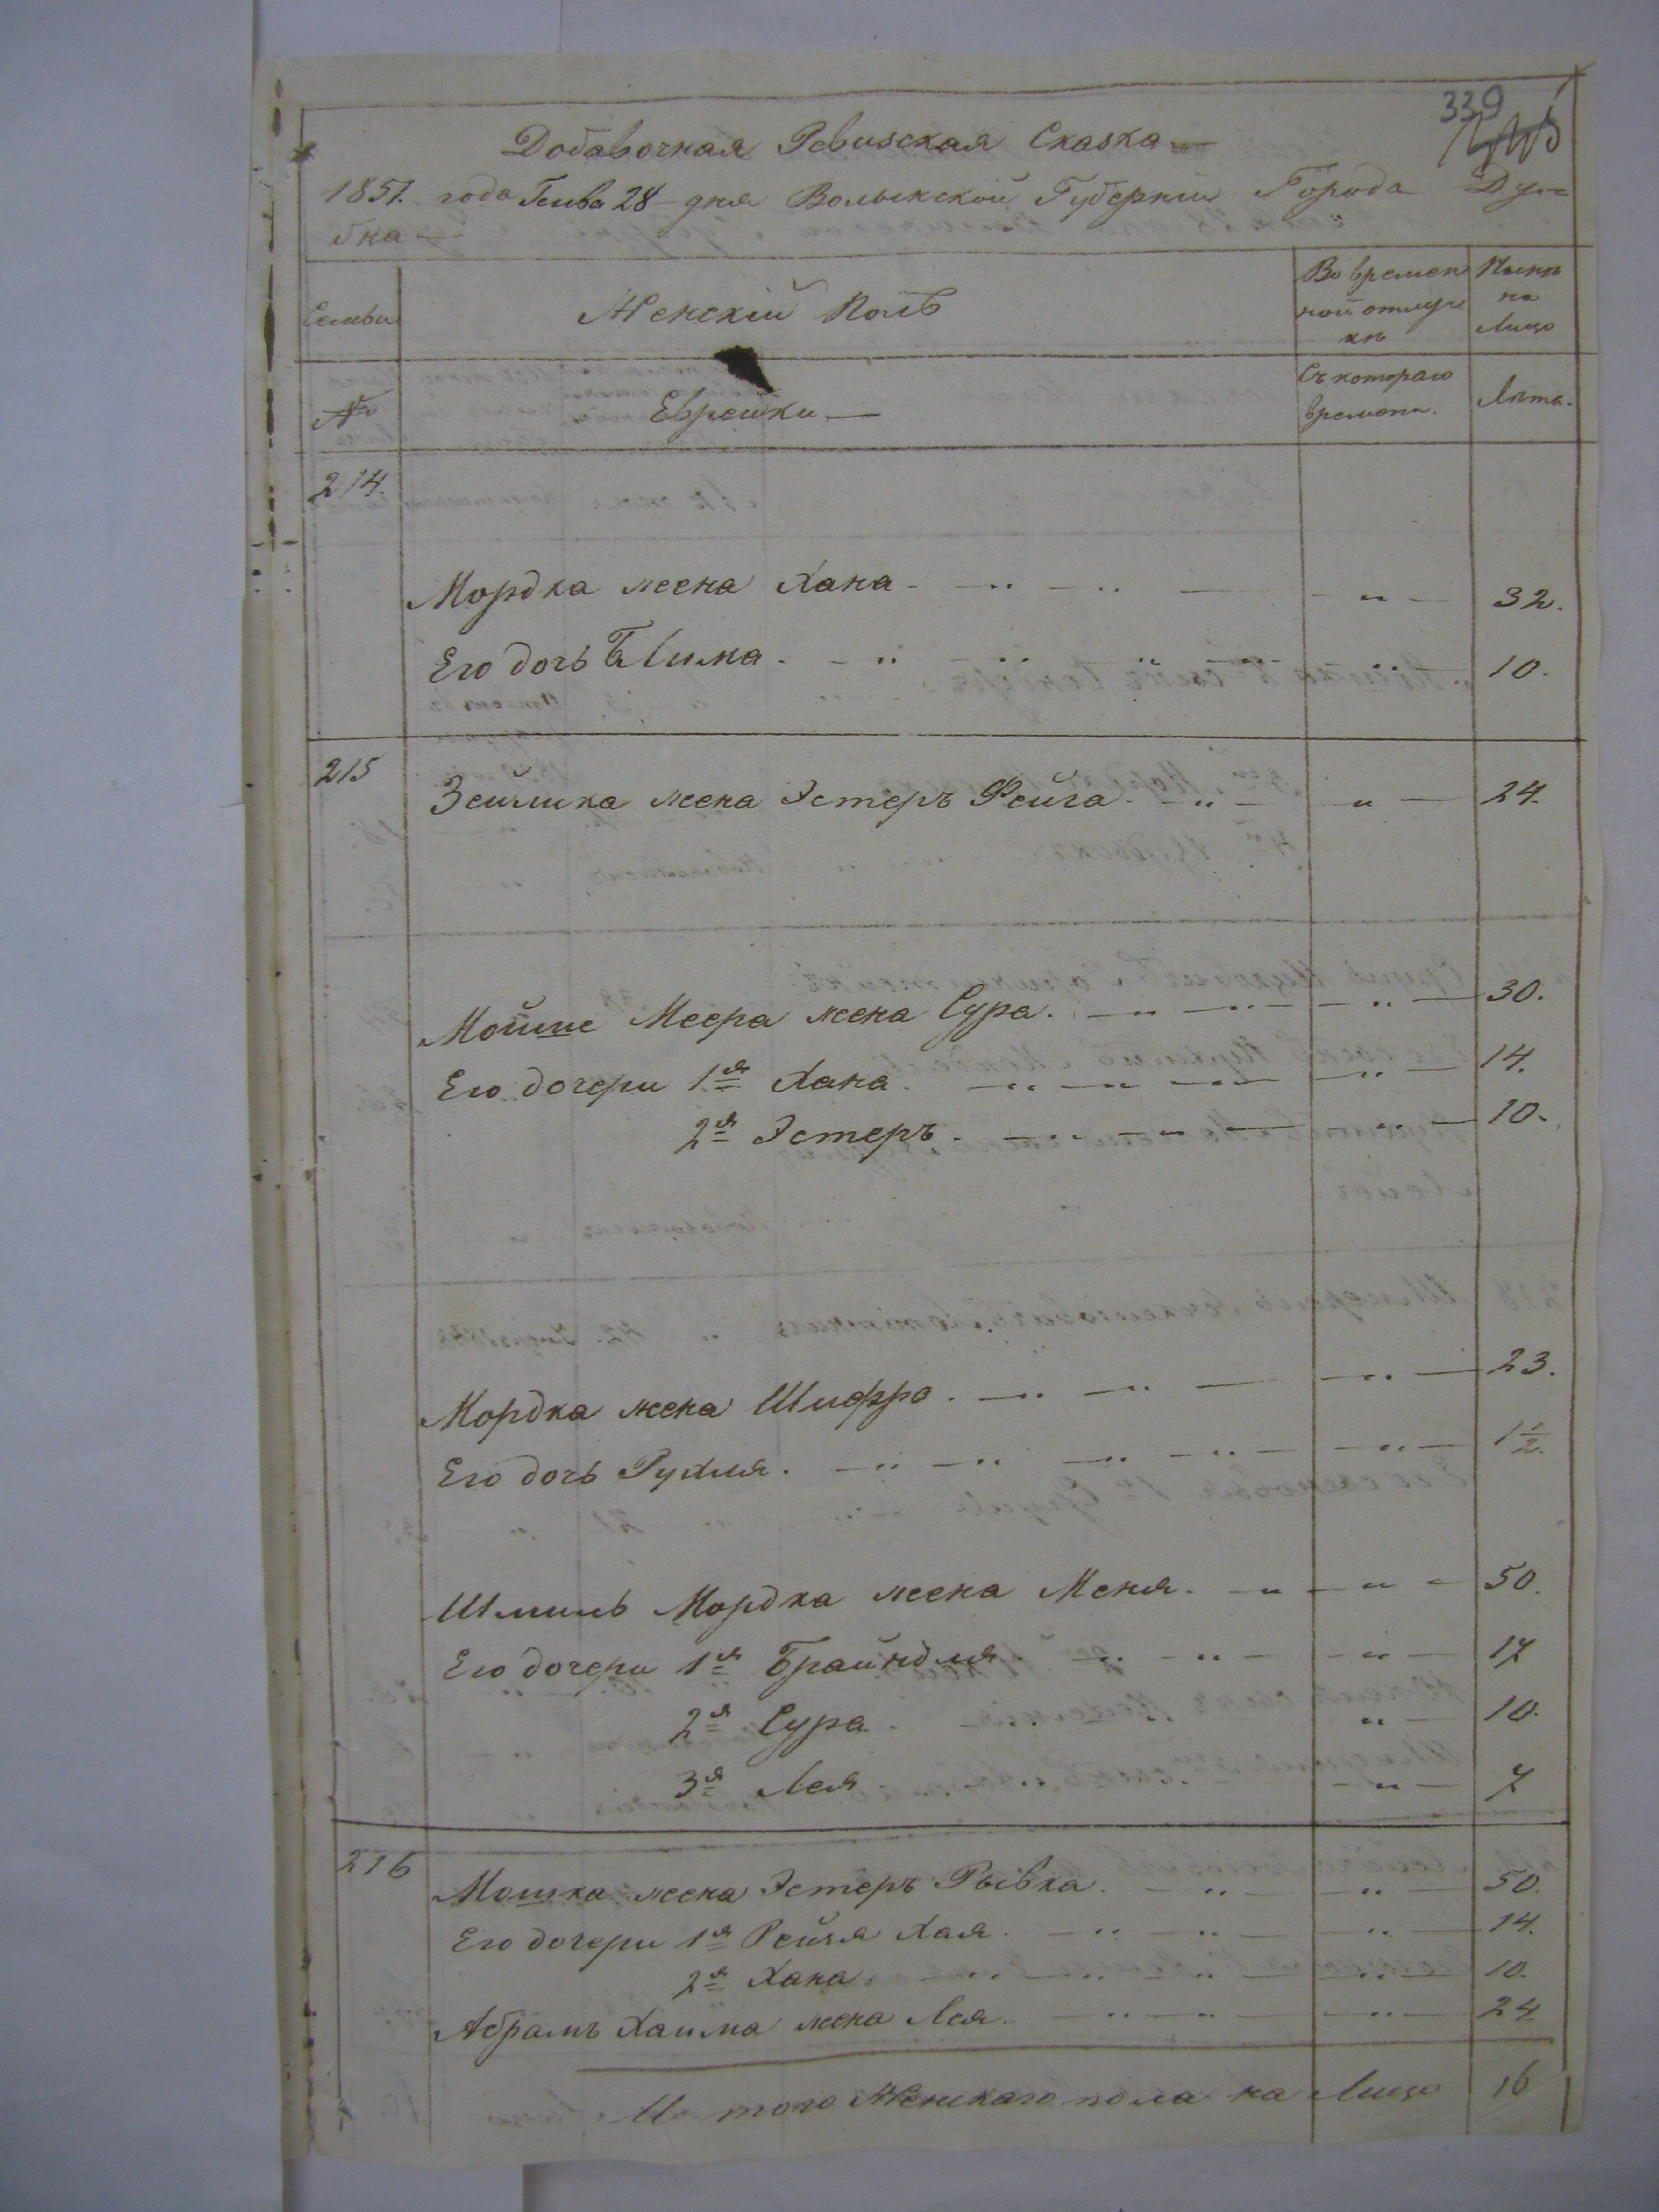 339
Добавочная Ревизская Сказка
1851. года Генва 28 дня Волынской Губерніи Города Ду=
бна
Семьи
Женскій Полъ
Во времен
ной отлуч
кѣ
Нынѣ
на
Лицо
№
Еврейки
Съ котораго
времени.
Лѣта.
214.
Мордка жена Хана 32.
Его дочь Блима 10.
215
Зейлика жена Эстеръ Фейга 24.
Мойше Меера жена Сура. 30.
Его дочери 1я Хана 14.
2я Эстеръ. 10.
Мордка жена Шифра. 23.
Его дочь Рухля. 1 1/2.
Шмиль Мордка жена Меня. 50.
Его дочери 1я Брайндля 17
2я Сура 10.
3я Лея 7
216
Мошка жена Эстеръ Рывка. 50.
Его дочери 1я Рейзя Хая. 14.
2я Хана. 10.
Абрамъ Хаима жена Лея. 24
И того Женскаго пола на Лицо 16